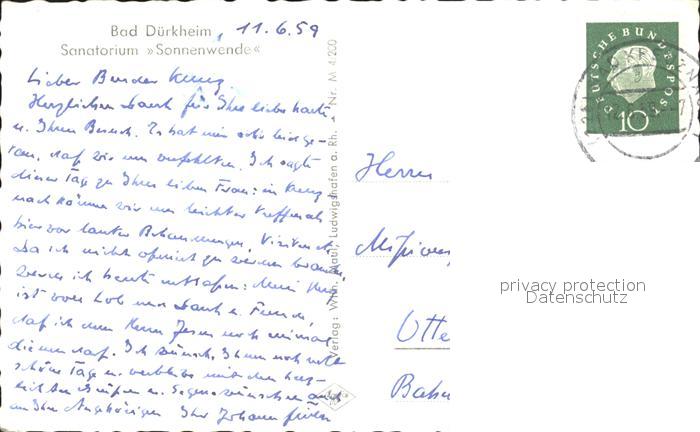 Bad Dürkheim, 11.6.59
Sanatorium »Sonnenwende«
Lieber Bruder
Herzlichen Dank für Ihre liebe Karte
u. Ihren Besuch. Es hat mir sehr leid ge-
tan, daß wir uns verfehlten. Ich sagte
dieser Tage zu Ihrer lieben Frau: in
nach können wir uns leichter treffen als
hier vor lauter Behandlungen,
Da ich nicht operiert zu werden brauche,
werde ich heute entlassen: Mein Herz
ist voll Lob und Dank u. Freude,
daß ich dem Herrn Jesus noch einmal
dienen darf. Ich wünsche Ihnen noch
schöne Tage u. verbleibe mit den herz-
lichsten Grüßen u. Segenswünschen auch
an Ihre Angehörigen Ihr Johann
Verlag: Wilh. Maul, Ludwigshafen a. Rh. Nr. M 4/200
DEUTSCHE BUNDESPOST
10
Herrn
Bahn
privacy protection
Datenschutz